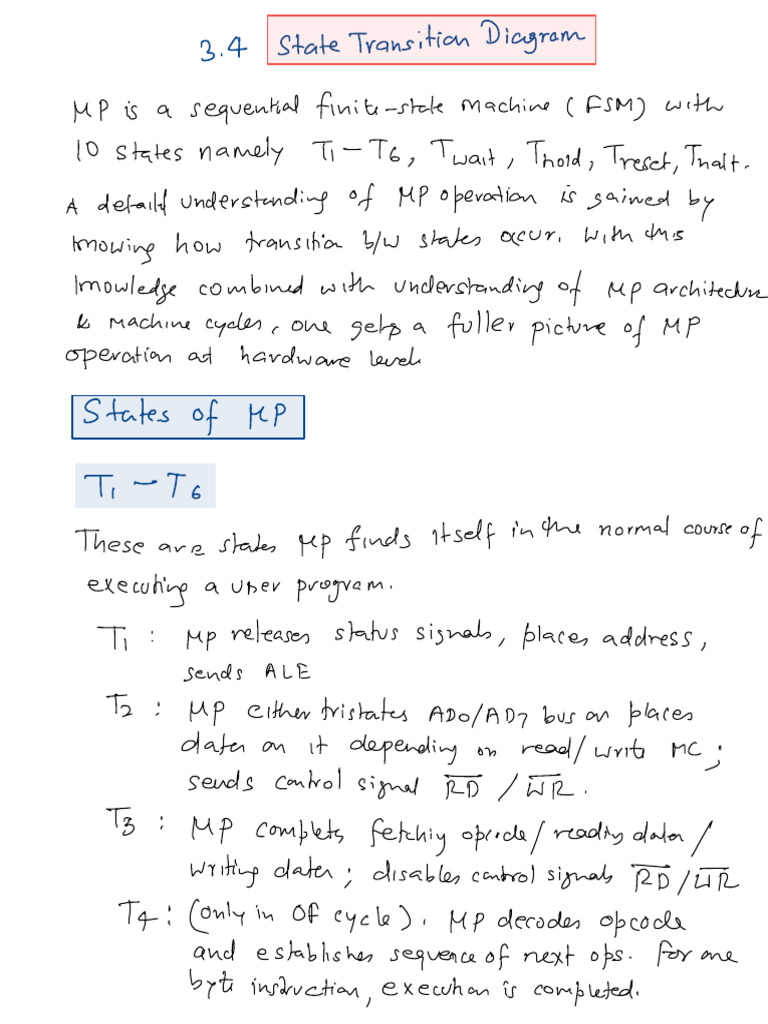 3.4 State Transition Diagram
MP is a sequential finite-state machine (FSM) with
10 states namely T1 – T6, Twait, Thold, Treset, Thalt.
A detaild understanding of MP operation is gained by
knowing how transition b/w states occur. With this
knowledge combined with understanding of MP architecture
& machine cycles, one gets a fuller picture of MP
operation at hardware level.
States of MP
T1 – T6
These are states MP finds itself in the normal course of
executing a user program.
T1 : MP releases status signals, places address,
sends ALE
T2 : MP either tristates AD0/AD7 bus or places
data on it depending on read/write MC;
sends control signal R̅D̅ / W̅R̅.
T3 : MP complets fetching opcode/reading data/
writing data; disables control signals R̅D̅/W̅R̅
T4 : (only in OF cycle). MP decodes opcode
and establishes sequence of next ops. For one
byte instruction, execution is completed.